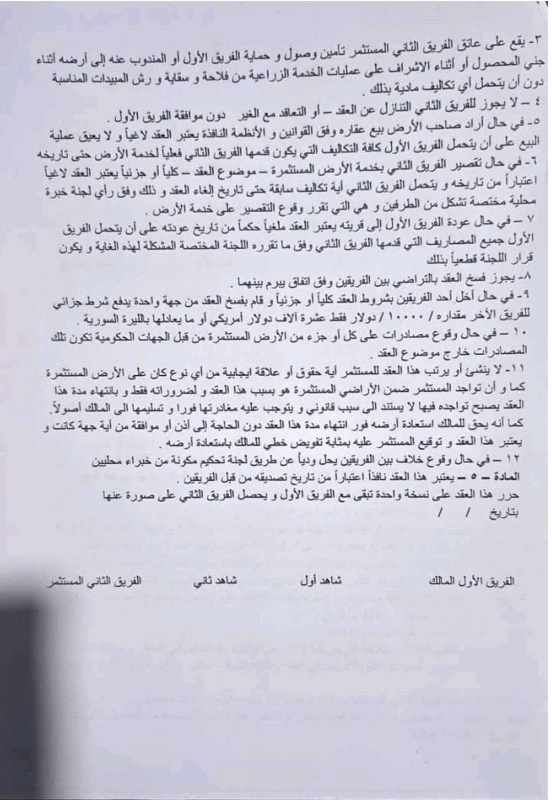 ٣- يقع على عاتق الفريق الثاني المستثمر تأمين وصول و حماية الفريق الأول أو المندوب عنه إلى أرضه أثناء
جني المحصول أو أثناء الاشراف على عمليات الخدمة الزراعية من فلاحة و سقاية و رش المبيدات المناسبة
دون أن يتحمل أي تكاليف مادية بذلك .
٤ – لا يجوز للفريق الثاني التنازل عن العقد – أو التعاقد مع الغير دون موافقة الفريق الأول .
٥- في حال أراد صاحب الأرض بيع عقاره وفق القوانين و الأنظمة النافذة يعتبر العقد لاغياً و لا يعيق عملية
البيع على أن يتحمل الفريق الأول كافة التكاليف التي يكون قدمها الفريق الثاني فعلياً لخدمة الأرض حتى تاريخه
٦- في حال تقصير الفريق الثاني بخدمة الأرض المستثمرة – موضوع العقد – كلياً أو جزئياً يعتبر العقد لاغياً
اعتباراً من تاريخه و يتحمل الفريق الثاني أية تكاليف سابقة حتى تاريخ إلغاء العقد و ذلك وفق رأي لجنة خبرة
محلية مختصة تشكل من الطرفين و هي التي تقرر وقوع التقصير على خدمة الأرض .
٧ – في حال عودة الفريق الأول إلى قريته يعتبر العقد ملغياً حكماً من تاريخ عودته على أن يتحمل الفريق
الأول جميع المصاريف التي قدمها الفريق الثاني وفق ما تقرره اللجنة المختصة المشكلة لهذه الغاية و يكون
قرار اللجنة قطعياً بذلك
٨- يجوز فسخ العقد بالتراضي بين الفريقين وفق اتفاق يبرم بينهما .
٩- في حال أخل أحد الفريقين بشروط العقد كلياً أو جزئياً و قام بفسخ العقد من جهة واحدة يدفع شرط جزائي
للفريق الآخر مقداره / ١٠٠٠٠ / دولار فقط عشرة آلاف دولار أمريكي أو ما يعادلها بالليرة السورية .
١٠ – في حال وقوع مصادرات على كل أو جزء من الأرض المستثمرة من قبل الجهات الحكومية تكون تلك
المصادرات خارج موضوع العقد .
١١- لا ينشئ أو يرتب هذا العقد للمستثمر أية حقوق أو علاقة ايجابية من أي نوع كان على الأرض المستثمرة
كما و أن تواجد المستثمر ضمن الأراضي المستثمرة هو بسبب هذا العقد و لضروراته فقط و بانتهاء مدة هذا
العقد يصبح تواجده فيها لا يستند الى سبب قانوني و يتوجب عليه مغادرتها فورا و تسليمها الى المالك أصولاً.
كما أنه يحق للمالك استعادة أرضه فور انتهاء مدة هذا العقد دون الحاجة إلى أذن أو موافقة من أية جهة كانت و
يعتبر هذا العقد و توقيع المستثمر عليه بمثابة تفويض خطي للمالك باستعادة أرضه .
١٢ – في حال وقوع خلاف بين الفريقين يحل ودياً عن طريق لجنة تحكيم مكونة من خبراء محليين
المادة – ٥ – يعتبر هذا العقد نافذاً اعتباراً من تاريخ تصديقه من قبل الفريقين .
حرر هذا العقد على نسخة واحدة تبقى مع الفريق الأول و يحصل الفريق الثاني على صورة عنها
بتاريخ / /
الفريق الأول المالك شاهد أول شاهد ثاني الفريق الثاني المستثمر